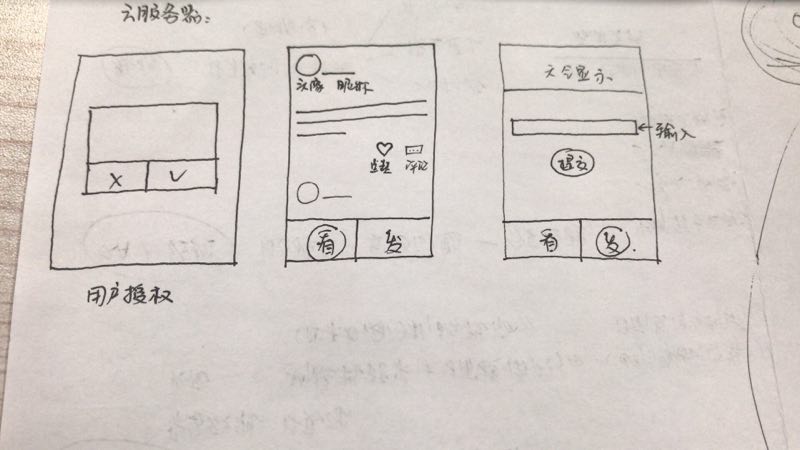 云服务器:
X
V
用户授权
头像 昵称
点赞 评论
看 发
文字显示
输入
提交
看 发